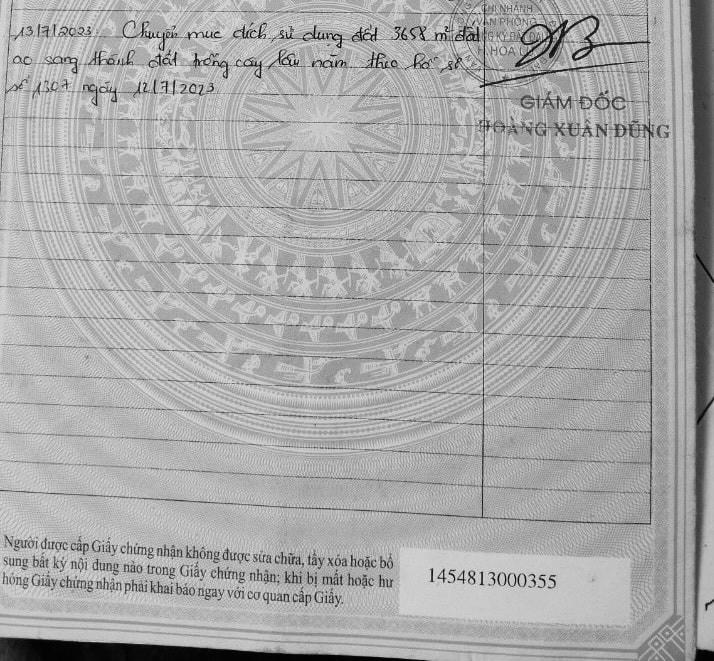 CHI NHÁNH
VĂN PHÒNG
13/7/2023 Chuyển mục đích sử dụng đất 3658 m² đất
ao sang thành đất trồng cây lâu năm theo hồ sơ
số 1307 ngày 12/7/2023
GIÁM ĐỐC
HOÀNG XUÂN DŨNG
Người được cấp Giấy chứng nhận không được sửa chữa, tẩy xóa hoặc bổ
sung bất kỳ nội dung nào trong Giấy chứng nhận; khi bị mất hoặc hư
hỏng Giấy chứng nhận phải khai báo ngay với cơ quan cấp Giấy.
1454813000355